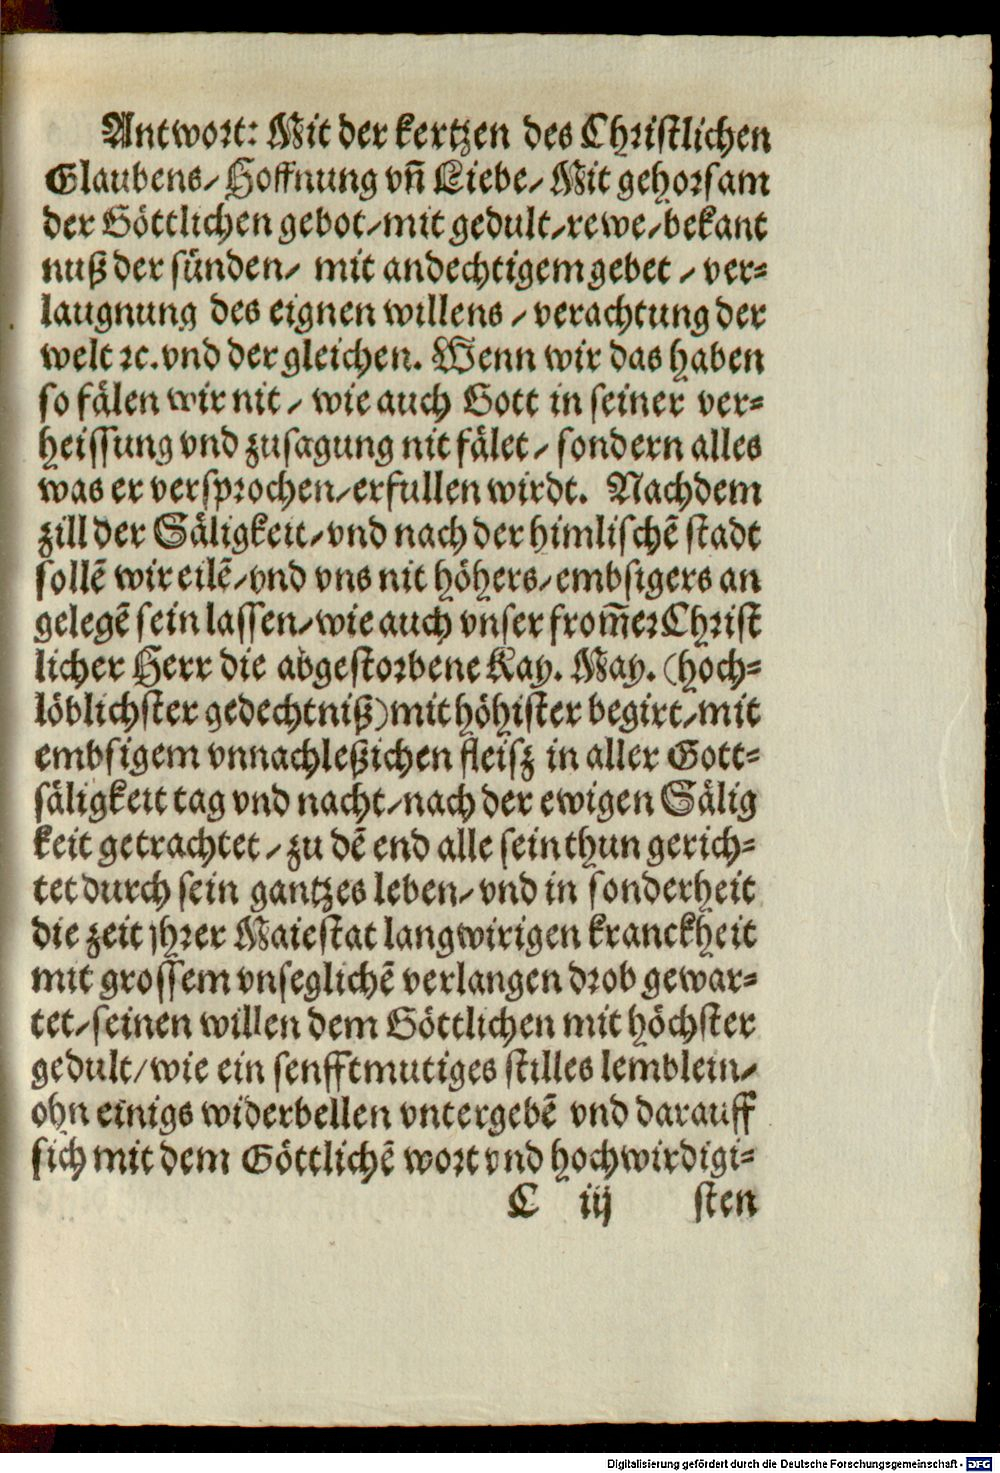 Antwort: Mit der kertzen des Christlichen
Glaubens/ Hoffnung vñ Liebe/ Mit gehorsam
der Göttlichen gebot/ mit gedult/ rewe/ bekant
nuß der sünden/ mit andechtigem gebet/ ver-
laugnung des eignen willens/ verachtung der
welt ꝛc. vnd der gleichen. Wenn wir das haben
so fälen wir nit/ wie auch Gott in seiner ver-
heissung vnd zusagung nit fälet/ sondern alles
was er versprochen/ erfullen wirdt. Nach dem
zill der Säligkeit/ vnd nach der himlischē stadt
sollē wir eilē/ vnd vns nit höhers/ embsigers an
gelegē sein lassen/ wie auch vnser from̃er Christ
licher Herr die abgestorbene Kay. May. (hoch-
löblichster gedechtniß) mit höhister begirt/ mit
embsigem vnnachleßichen fleisz in aller Gott-
säligkeit tag vnd nacht/ nach der ewigen Sälig
keit getrachtet/ zu dē end alle sein thun gerich-
tet durch sein gantzes leben/ vnd in sonderheit
die zeit yhrer Maiestat langwirigen kranckheit
mit grossem vnseglichē verlangen drob gewar-
tet/ seinen willen dem Göttlichen mit höchster
gedult/ wie ein senfftmutiges stilles lemblein/
ohn einigs widerbellen vntergebē vnd darauff
sich mit dem Göttlichē wort vnd hochwirdigi-
C iij sten
Digitalisierung gefördert durch die Deutsche Forschungsgemeinschaft - DFG